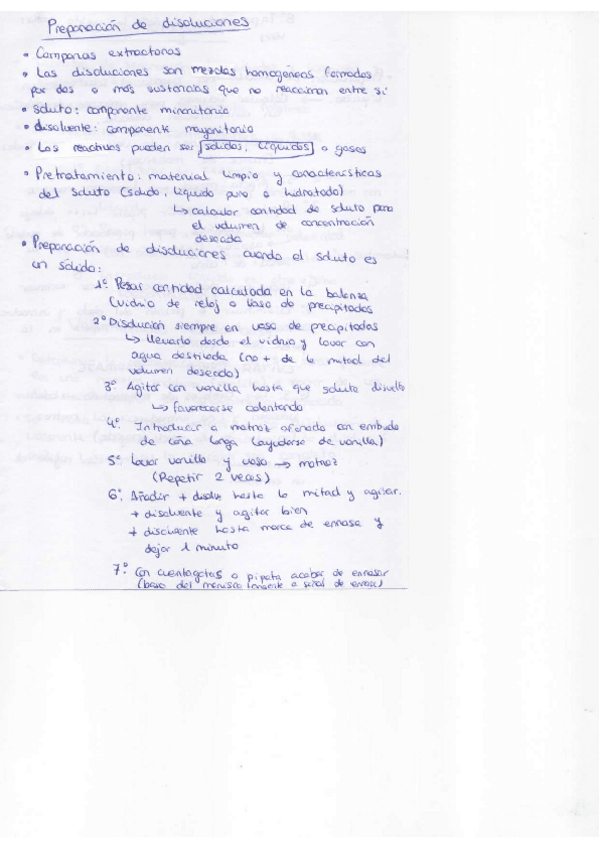 Preparación de disoluciones
• Campanas extractoras
• Las disoluciones son mezclas homogéneas formadas
por dos o más sustancias que no reaccionan entre sí
• Soluto: componente minoritario
• disolvente: componente mayoritario
• Los reactivos pueden ser sólidos, líquidos o gases
• Pretratamiento: material limpio y características
del soluto (sólido, líquido puro o hidratado)
↳ calcular cantidad de soluto para
el volumen de concentración
deseada
• Preparación de disoluciones cuando el soluto es
un sólido:
1º Pesar cantidad calculada en la balanza
(vidrio de reloj o vaso de precipitados
2º Disolución siempre en vaso de precipitados
↳ llevarlo desde el vidrio y lavar con
agua destilada (no + de la mitad del
volumen deseado)
3º Agitar con varilla hasta que soluto disuelto
↳ favorecerse calentando
4º Introducir a matraz aforado con embudo
de caña larga (ayudarse de varilla)
5º Lavar varilla y vaso → matraz
(Repetir 2 veces)
6º Añadir + disolve hasta la mitad y agitar.
+ disolvente y agitar bien
+ disolvente hasta marca de enrase y
dejar 1 minuto
7º Con cuentagotas o pipeta acabar de enrasar
(base del menisco tangente a señal de enrase)